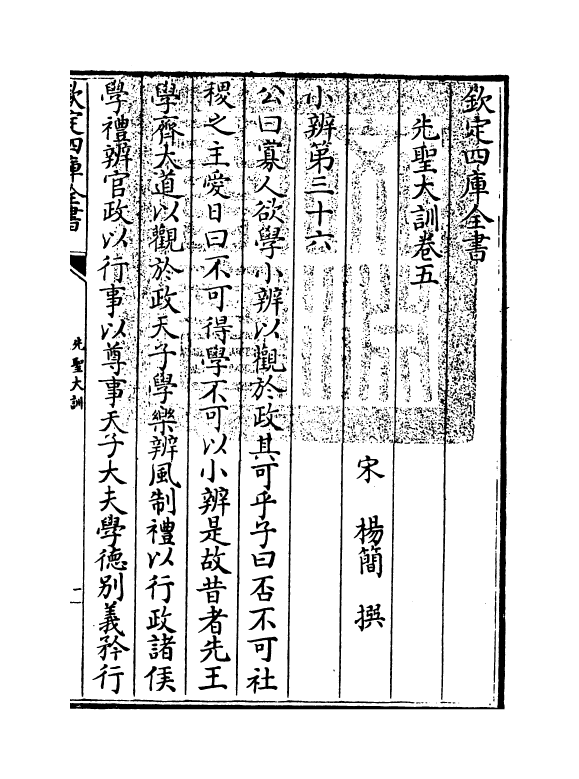 欽定四庫全書
先聖大訓卷五
宋 楊簡 撰
小辨第三十六
公曰寡人欲學小辨以觀於政其可乎子曰否不可社
稷之主愛日日不可得學不可以小辨是故昔者先王
學齊大道以觀於政天子學樂辨風制禮以行政諸侯
學禮辨官政以行事以尊事天子大夫學德别義矜行
欽定四庫全書
先聖大訓